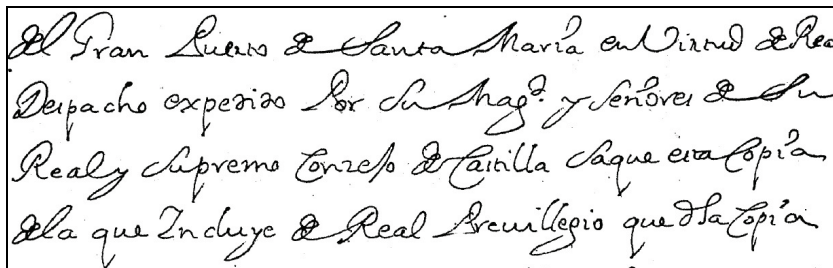 del Gran Puerto de Santa María en Virtud de Rea
Despacho expedido Por Su Magd. y Señores de Su
Real y Supremo Conzejo de Castilla saque esta Copia
dela que Incluye el Real Preuillegio que dha Copia